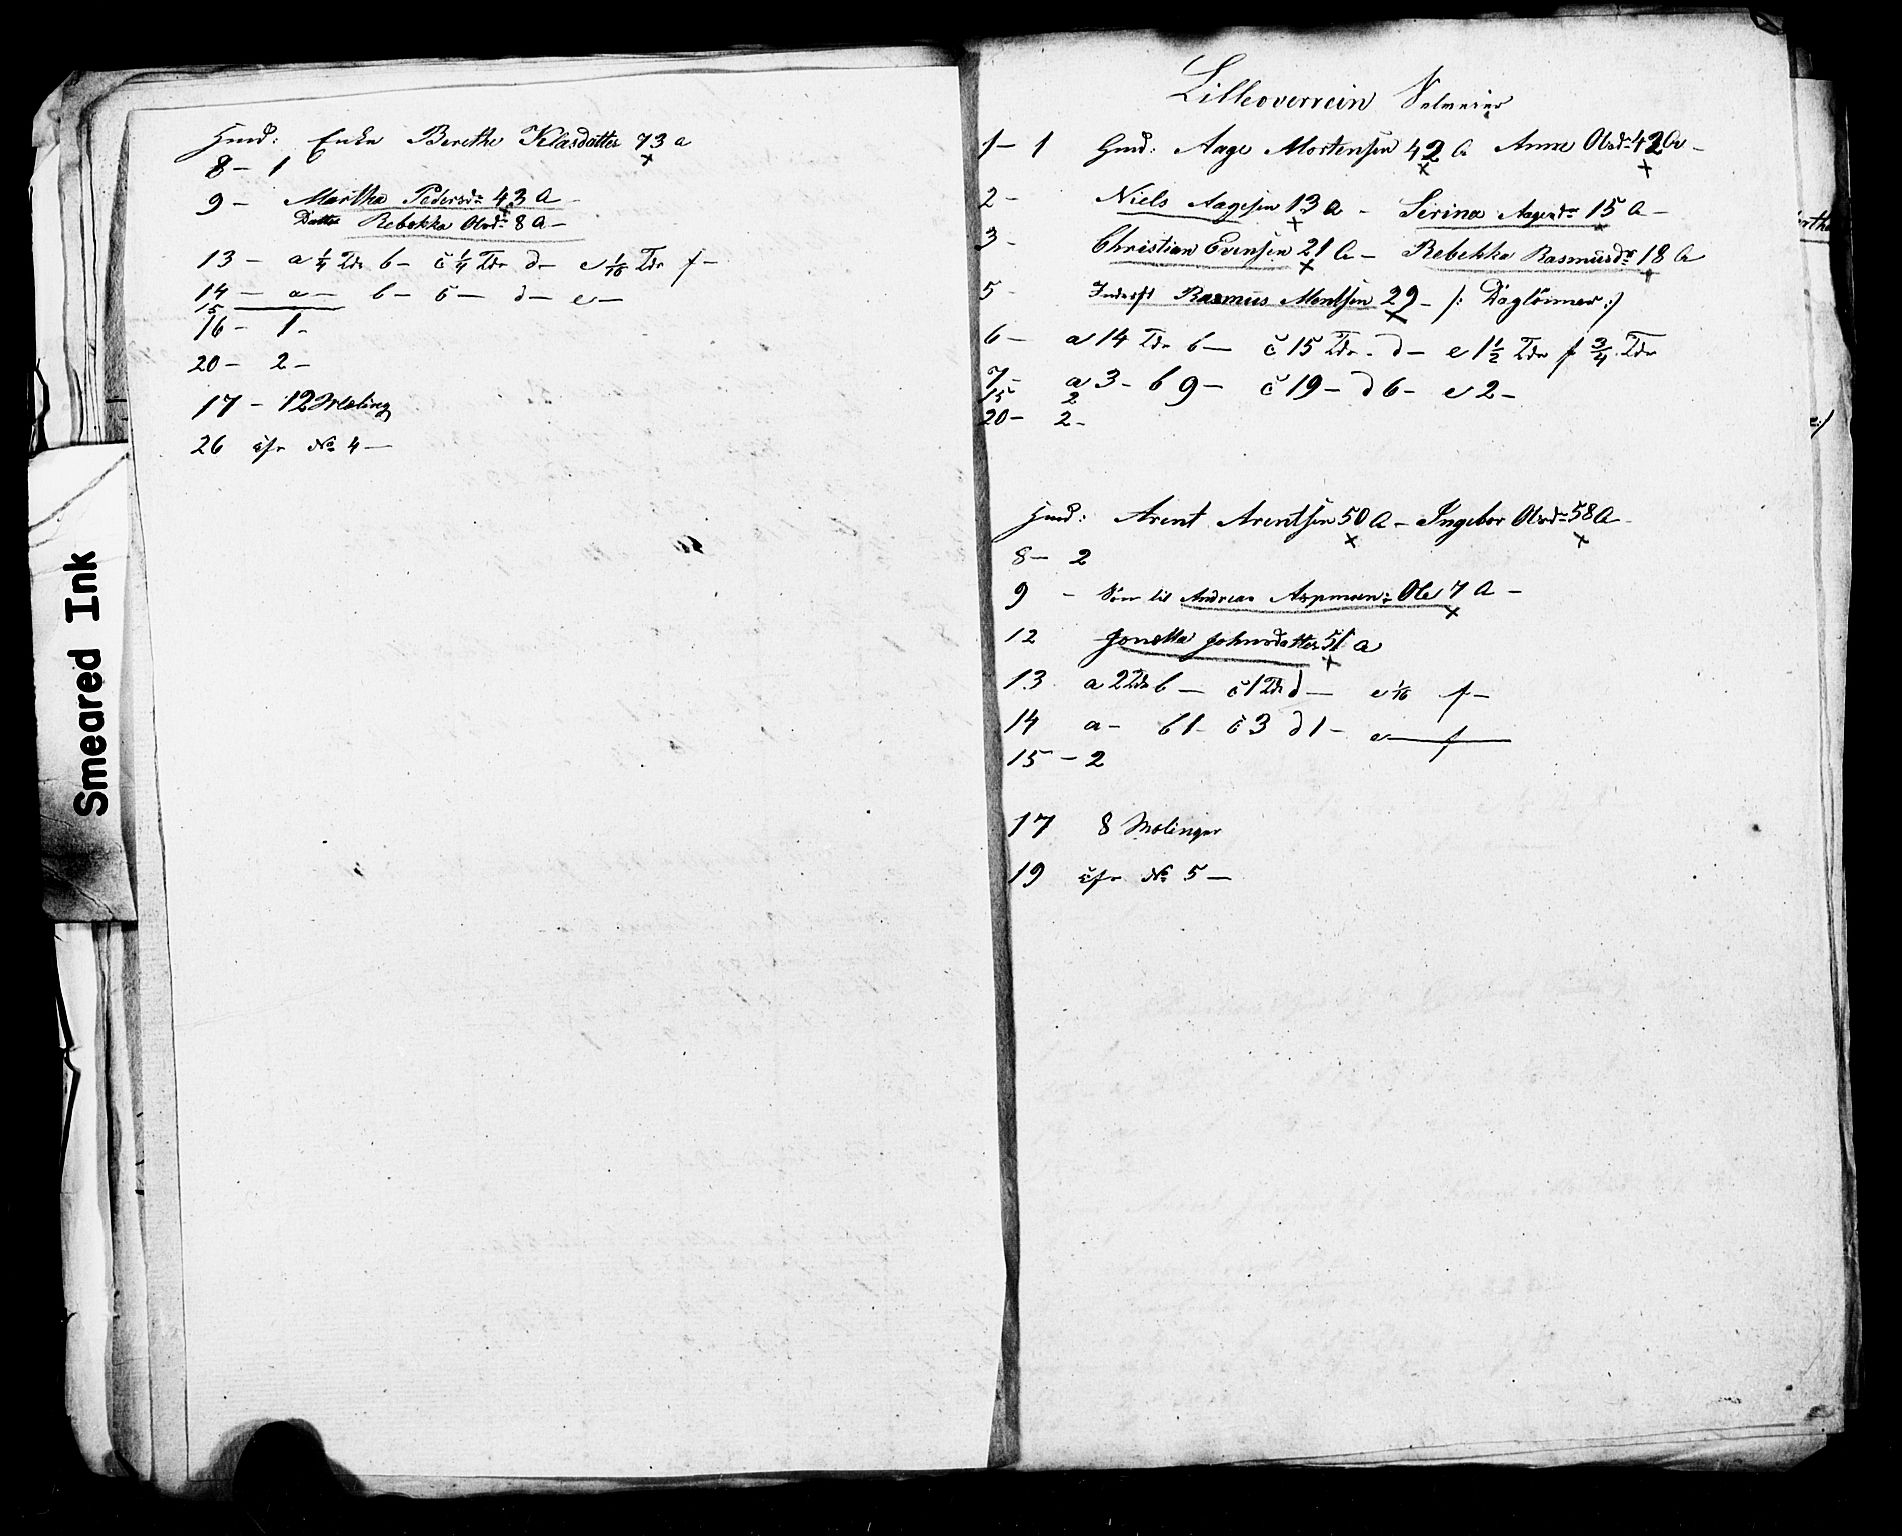 Hmd: Enke Berethe Klasdatter 73 a
8 – 1
9 – Martha Pedersdr 43 A –
Datter Rebekka Olsdr 8 A –
13 – a 1/4 Tdr b – c 1/4 Tdr d – e 1/16 Tdr f –
14 – a – b – c – d – e –
15
16 – 1 –
20 – 2 –
17 – 12 Mæling
26 cfr No 4 –
Smeared Ink
Lilleoverrein
1 – 1 Gmd: Aage Mortensen 42 A Anne Olsdr 42 A –
2 – Niels Aagesen 13 A – Serina Aagesdr 15 A –
3 – Christian Evensen 21 A – Rebekka Rasmusdr 18 A
5 – Inderst Rasmus Mentsen 29 – /: Daglönner :/
6 – a 14 Tdr b – c 15 Tdr – d – e 1 1/2 Tdr f 3/4 Tdr
7 – a 3 – b 9 – c 19 – d 6 – e 2 –
15 2
20 – 2 –
Hmd: Arent Arentsen 50 A – Ingebor Olsdr 58 A –
8 – 2
9 – Sön til Andreas Aspmoen: Ole 7 A –
12 Jonetta Johnsdatter 51 a
13 a 2 Tdr b – c 1 Tdr d – e 1/16 f –
14 a – b 1 – c 3 d 1 – e – f –
15 – 2
17 8 Mælinger
19 cfr No 5 –